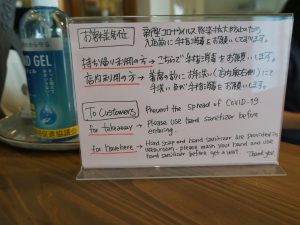 お客様各位
新型コロナウイルス感染拡大防止のため
入店前に手指消毒をお願いしてます。
持ち帰り利用の方→こちらで手指消毒をお願いします。
店内利用の方→着席の前に、お手洗い(店内最右側)にて
手洗い
手指消毒をお願いしてます。
To Customers
Prevent the spread of COVID-19.
for takeaway → Please use hand sanitizer before
entering.
for havehere → Hand soap and hand sanitizer are provided in
washroom. please wash your hand and use
hand sanitizer before get a seat. Thank you!
GEL